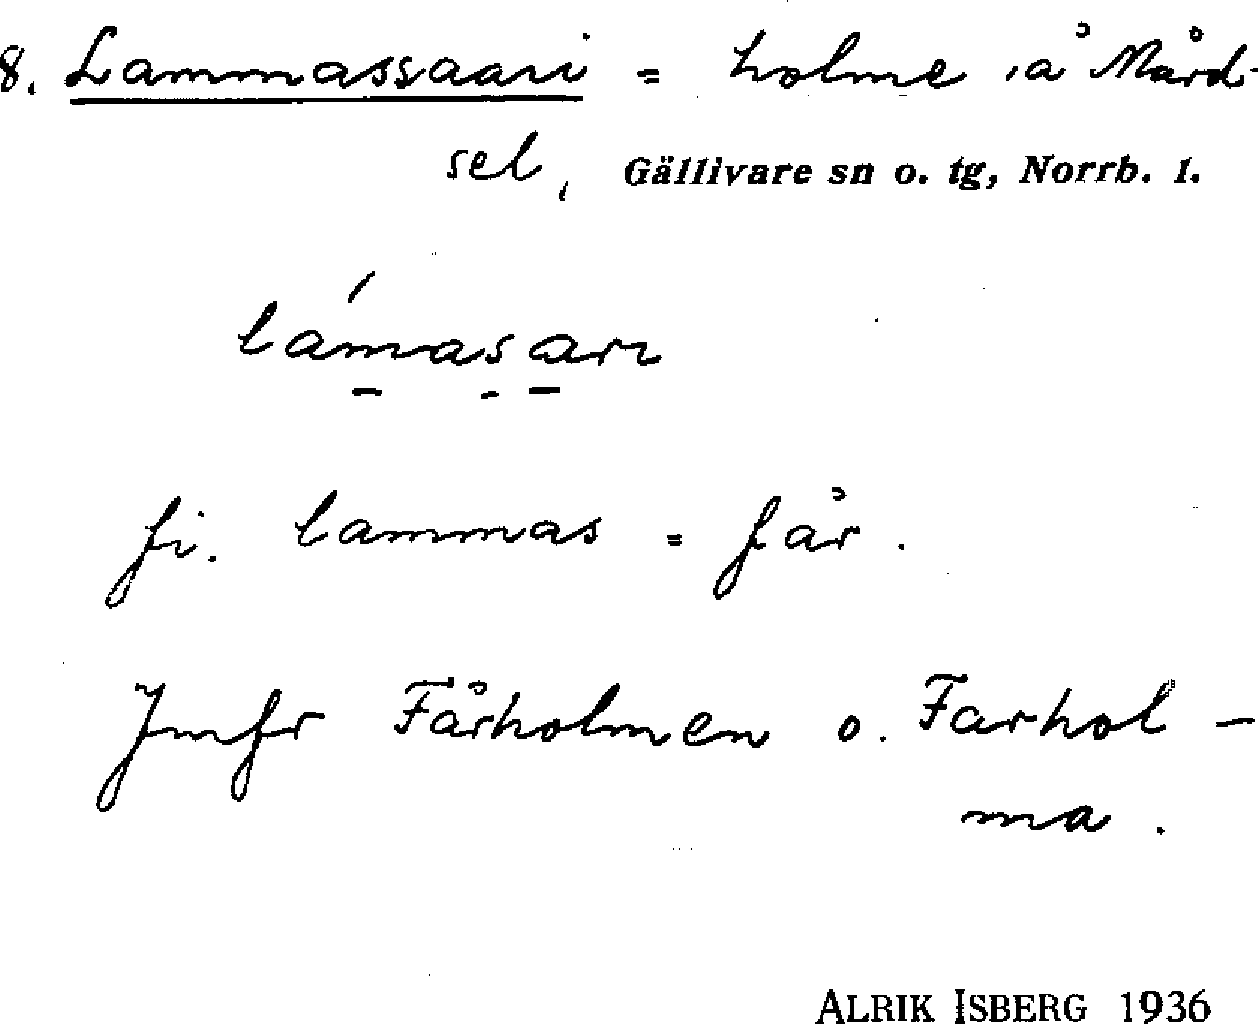 8. Lammassaari = holme i å Mård-
sel, Gällivare sn o. tg, Norrb. l.
lámasari
fi. lammas = får.
Jmfr Fårholmen o. Farhol-
ma.
ALRIK ISBERG 1936